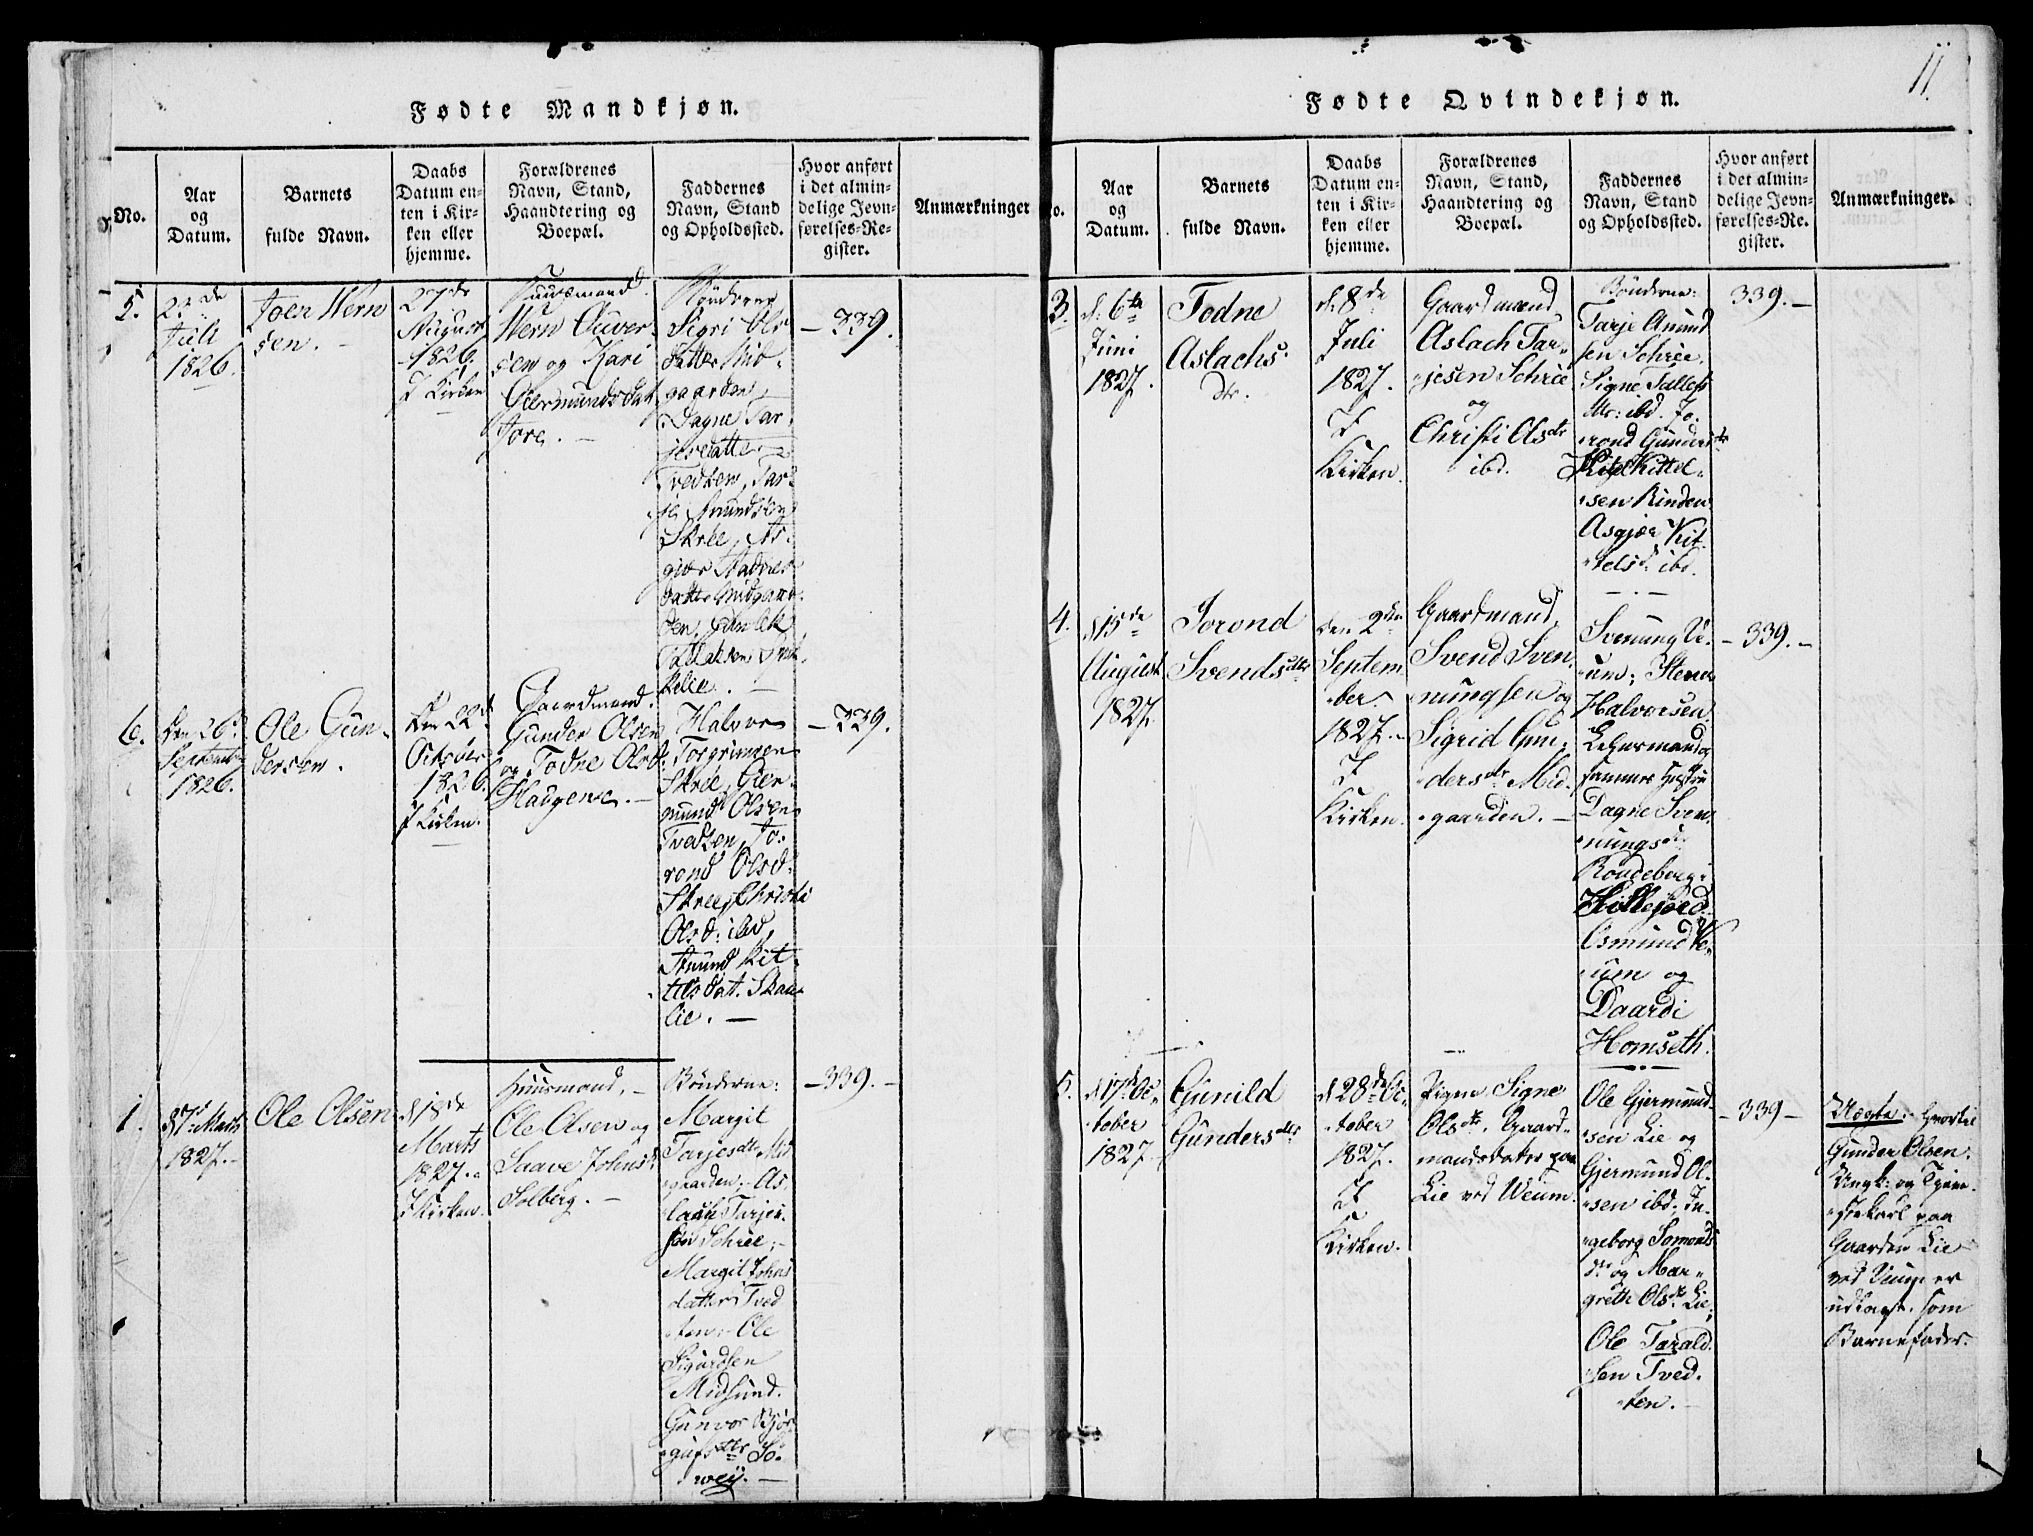 Fødte Mandkjøn.
No.
Aar
og
Datum.
Barnets
fulde Navn.
Daabs
Datum en-
ten i Kir-
ken eller
hjemme.
Forældrenes
Navn, Stand,
Haandtering og
Boepæl.
Faddernes
Navn, Stand
og Opholdssted.
Hvor anført
i det almin-
delige Jevn-
førelses-Re-
gister.
Anmærkninger
5.
23de
Juli
1826.
Joen Wern
sen.
27de
August
1826.
I Kirken
Huusmand
Wern Siver
sen og Kari
Giermundsdat
Jore.
Bønderne
Sigri Ols
datter Mid-
gaarden,
Dagne Tar-
jesdatter
Tvedten, Tar-
je Amundsen
Skree, As-
gier
datter Midgaar-
den,
339.
6.
Den 26d
Septemb
1826.
Ole Gun-
dersen.
Den 22d
October
1826.
I Kirken.
Gaardmand
Gunder Olsen
og Todne Olsd:
Haugene.
Halvor
Torgrimsen
Skree, Gier-
mund Olsen
Tvedten, Jo-
rond Olsd:
Skree, Christi
Olsd: ibd,
Amund Kit-
tels dat. Skau-
lie.
339.
1.
d 7d Marts
1827.
Ole Olsen
d 18de
Marts
1827.
I Kirken.
Huusmand,
Ole Olsen og
Saave Johnsd
Solberg.
Bønderne:
Margit
Tarjesdtr Mid
gaarden, As-
lach Tarje-
sen Schree;
Margit Johns
datter Tved
ten; Ole
Sigurdsen
Midsund.
Gunvor Bjør
gufsdtr So-
wey.
339.
11.
Fødte Qvindekjøn.
o.
Aar
og
Datum.
Barnets
fulde Navn.
Daabs
Datum en-
ten i Kir-
ken eller
hjemme.
Forældrenes
Navn, Stand,
Haandtering og
Boepæl.
Faddernes
Navn, Stand
og Opholdssted.
Hvor anført
i det almin-
delige Jevn-
førelses-Re-
gister.
Anmærkninger.
3.
d. 6te
Juni
1827.
Todne
Aslachs
dtr.
d. 8de
Juli
1827.
I
Kirken.
Gaardmand,
Aslach Tar-
jesen Schree
og
Christi Olsdtr
ibd.
Bønderne:
Tarje Amund
sen Schree,
Signe Tallefs
dtr: ibd. Jo-
rond Gundersdtr
Kittel-
sen Rinden
Asgjær Kit-
telsd: ibd.
339.
4.
d 15de
August
1827.
Jorond
Svendsdtr
den 2den
Septem
ber
1827.
I
Kirken.
Gaardmand,
Svend Sven
nungsen og
Sigrid Gun-
dersdtr Mid-
gaarden.
Svenung Ve-
um; Steen
Halvorsen
Lehnsmand og
sammes Hustru
Dagne Sven
nungsd:
Roudeberg:
Osmund Ve-
um og
Daardi
Homseth.
339.
5.
d 17de Oc-
tober
1827.
Gunild
Gundersdtr
d 28de Oc-
tober
1827.
I
Kirken.
Pigen Signe
Olsdtr, Gaard-
mandsdater paa
Lie ved Weum.
Ole Gjermund-
sen Lie og
Gjermund Ol-
sen ibd; In-
geborg Somonds
dr og Mar-
greth Olsdtr Lie;
Ole Tarald
sen Tved-
ten.
339
Uægte.
Gunder Olsen.
Ungk: og Tjene-
stekarl paa
Gaarden Lie
ved Veum er
udlagt som
Barnefader.